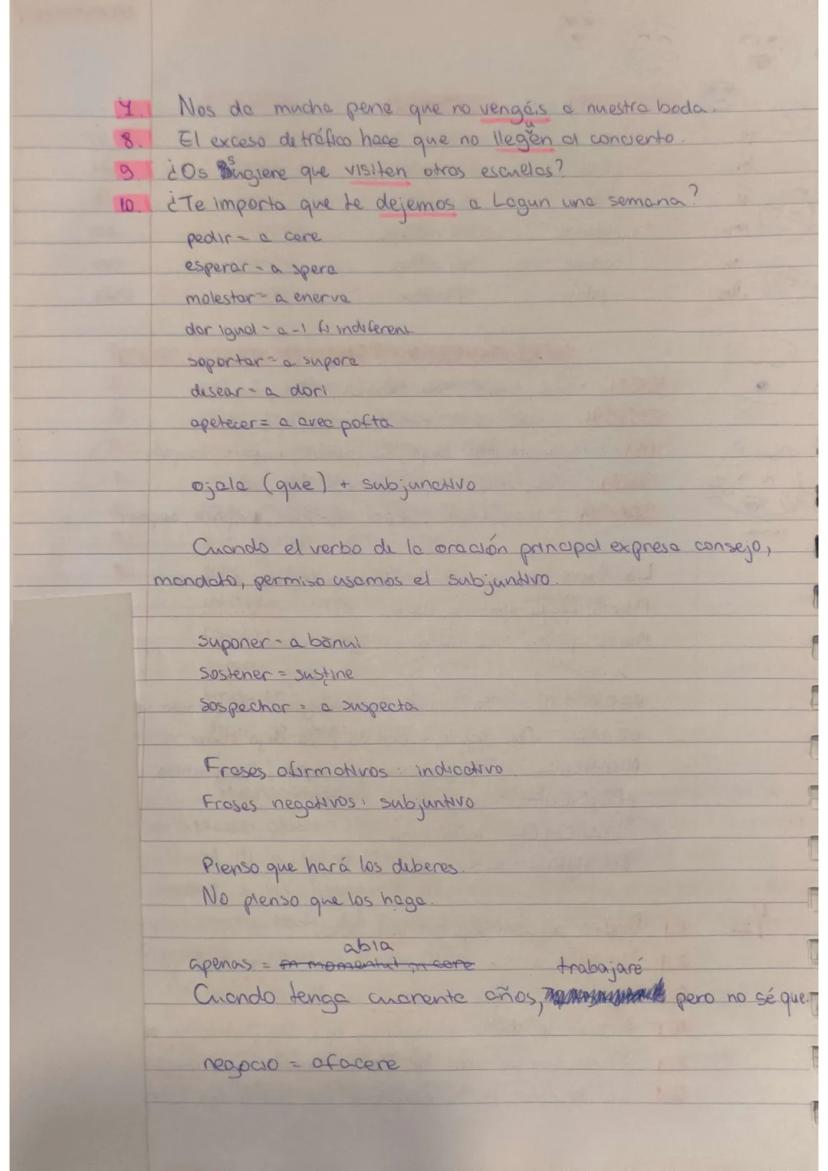 7. Nos da mucha pena que no vengáis a nuestra boda.
8. El exceso de tráfico hace que no lleguen al concierto.
9 ¿Os sugiere que visiten otras escuelas?
10. ¿Te importa que te dejemos a Lagun una semana?
pedir - a cere
esperar - a spera
molestar - a enerva
dar igual - a-i fi indiferent
soportar = a supora
desear - a dori
apetecer = a avea pofta
ojala (que) + subjunctivo
Cuando el verbo de la oración principal expresa consejo,
mandato, permiso usamos el subjuntivo.
suponer - a bănui
sostener = susține
sospechar = a suspecta
Frases afirmativas: indicativo
Frases negativas: subjuntivo
Pienso que hará los deberes.
No pienso que los haga.
abia
apenas = în momentul în care
trabajaré
Cuando tenga cuarenta años, pero no sé que.
negocio = afacere